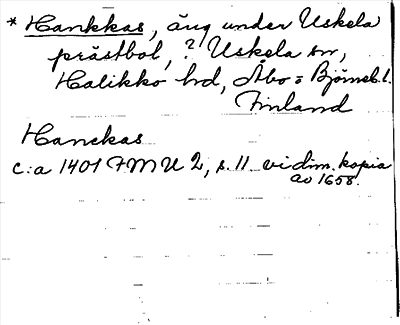 * Hankkas, äng under Uskela
prästbol, ? Uskela sn,
Halikko hd, Åbo = Björneb. l.
Finland
Hanckas
c:a 1401 FMU 2, s. 11 vidim. kopia
av 1658.